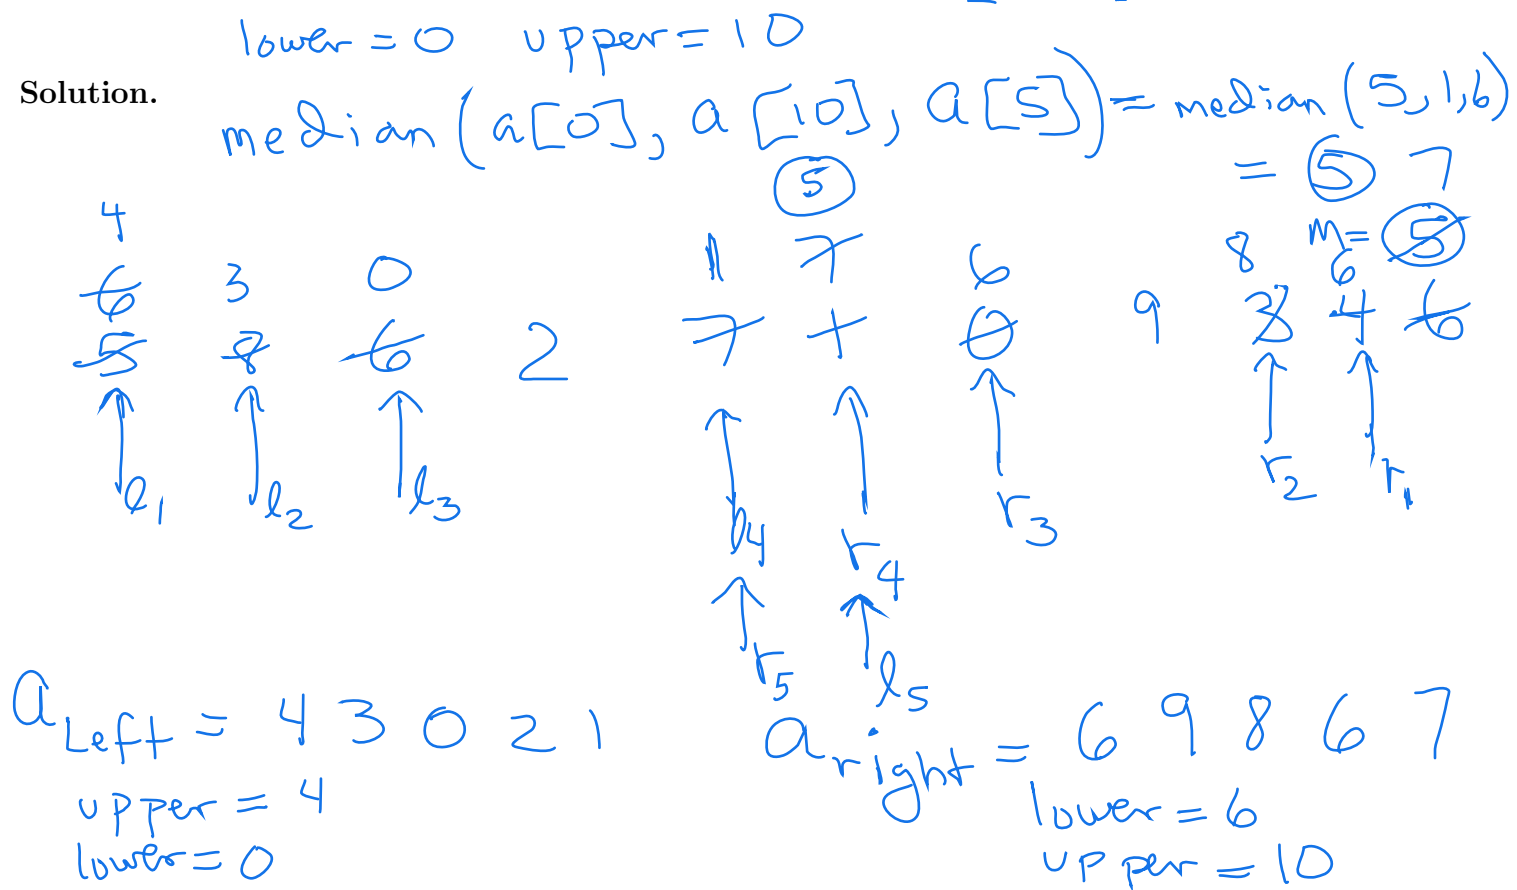 lower = 0 upper = 10
Solution.
median (a[0], a[10], a[5]) = median (5,1,6)
= 5 7
5
4
m = 5
6 3 0 1 7 6 8 6
5 8 6 2 7 1 0 9 3 4 6
l1 l2 l3 l4 r4 r3 r2 r1
r5 l5
a Left = 4 3 0 2 1 a right = 6 9 8 6 7
upper = 4 lower = 6
lower = 0 upper = 10